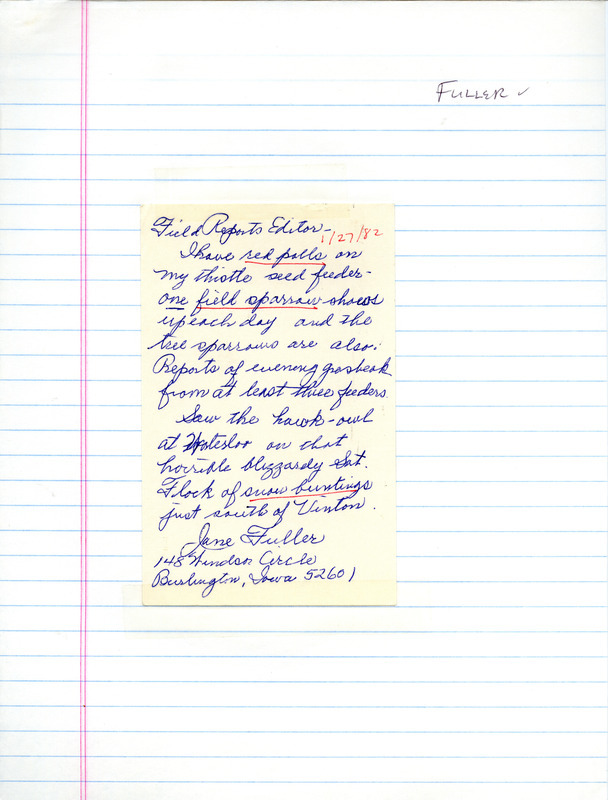 FULLER ✓
Field Reports Editor -
1/27/82
I have red polls on
my thistle seed feeder -
one field sparrow shows
up each day and the
tree sparrows are also.
Reports of evening grosbeak
from at least three feeders.
Saw the hawk-owl
at Waterloo on that
horrible blizzardy Sat.
Flock of snow buntings
just south of Vinton.
Jane Fuller
148 Windsor Circle
Burlington, Iowa 52601